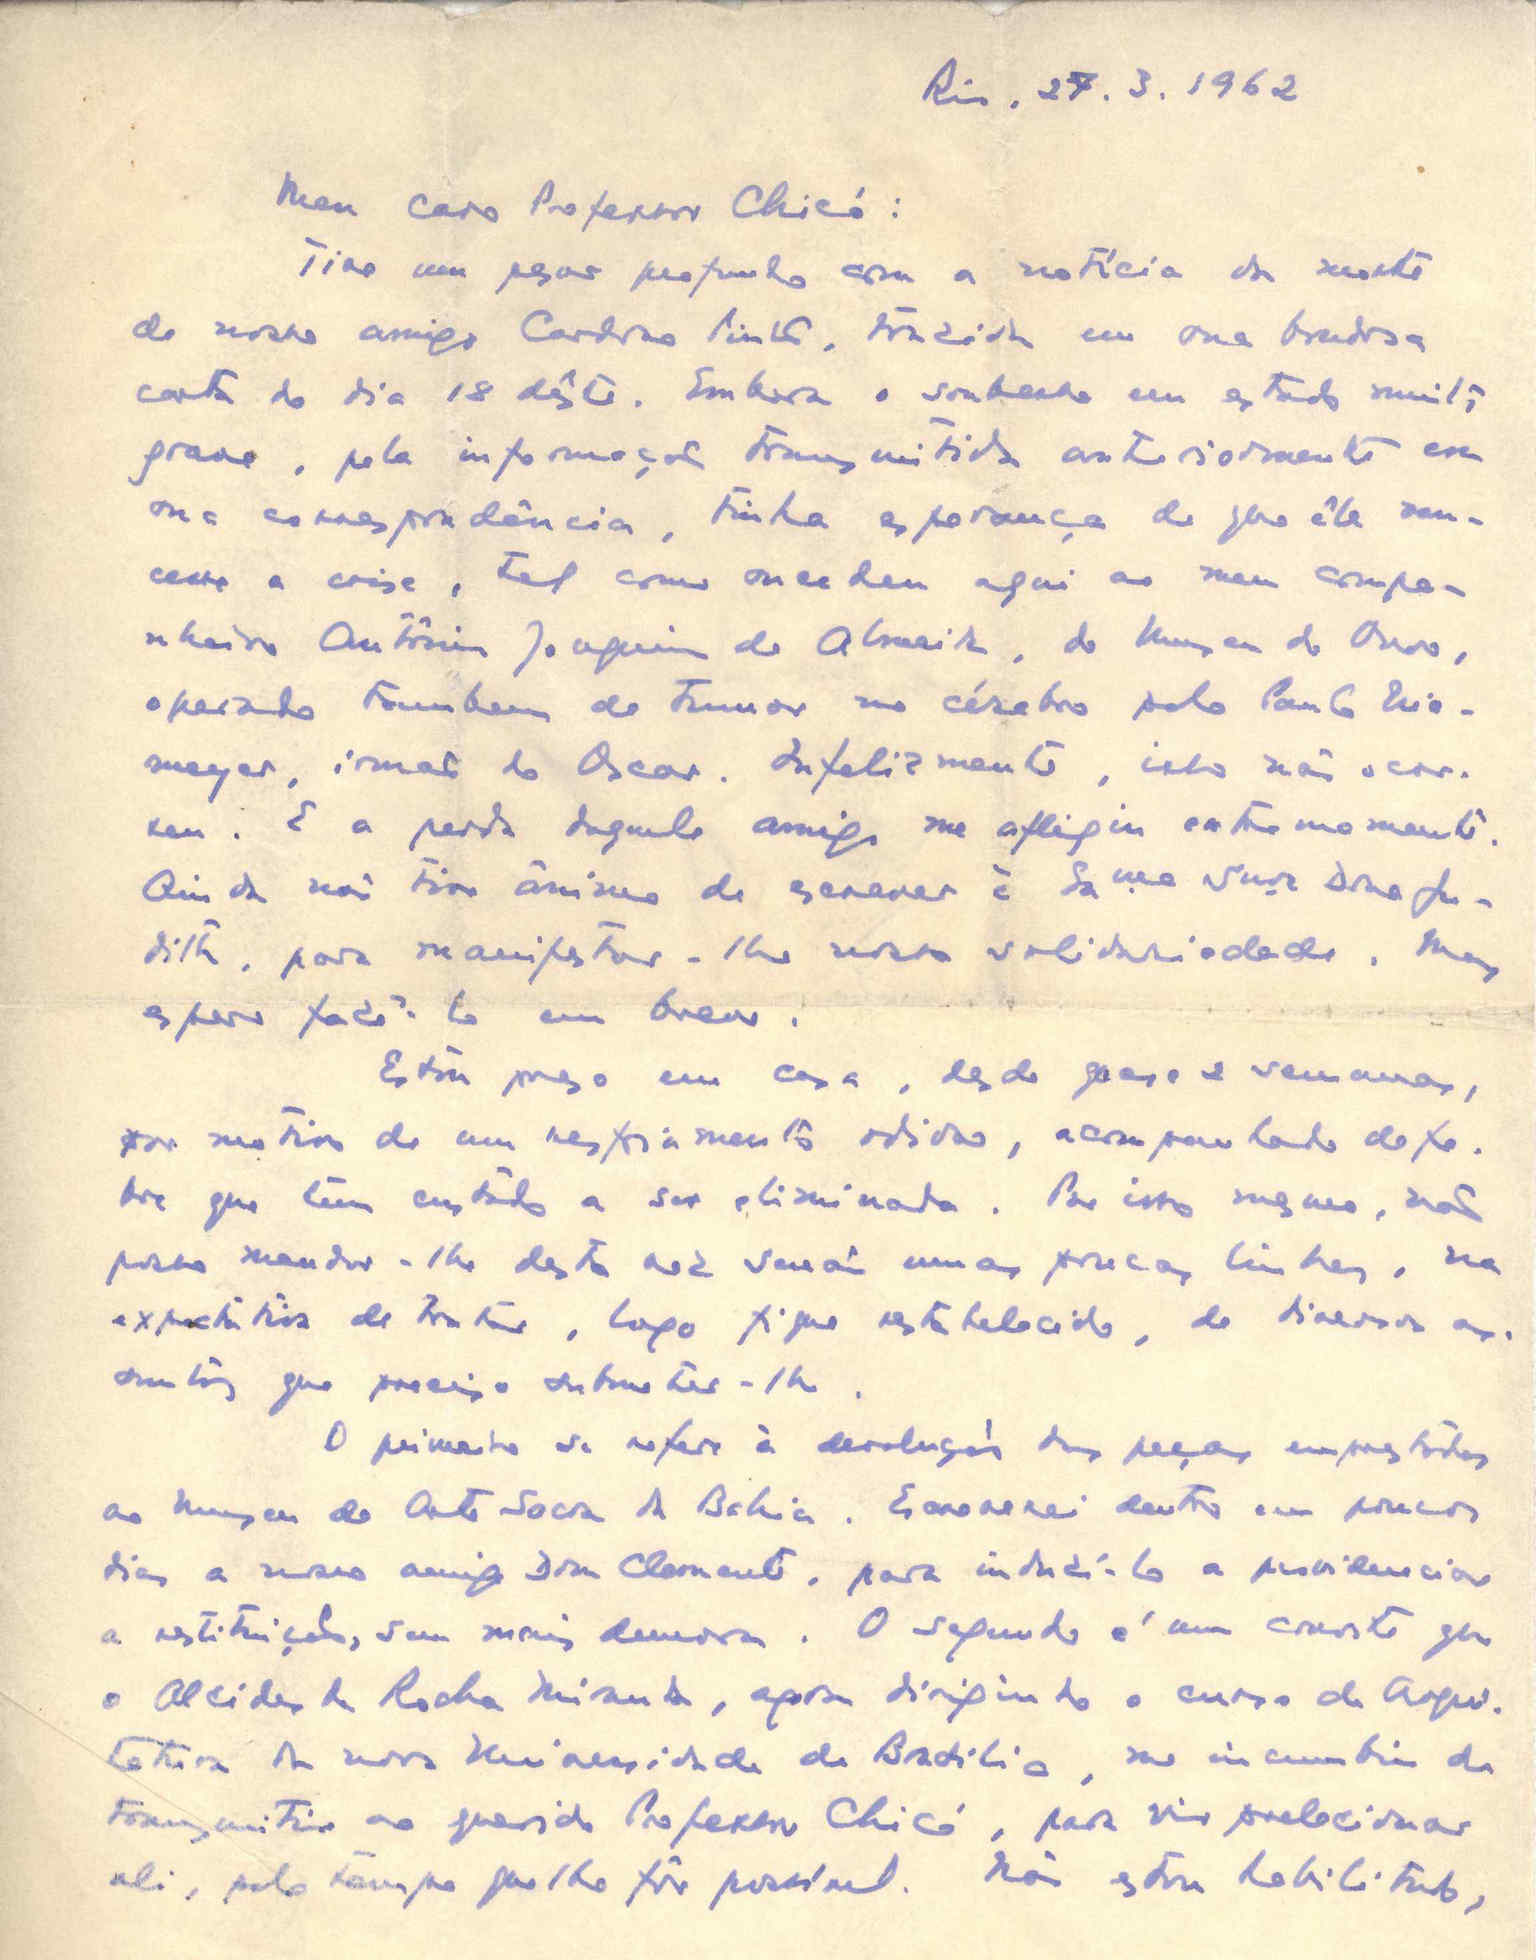 Rio, 27.3.1962
Meu caro Professor Chicó:
Tive um pesar profundo com a notícia da morte
de nosso amigo Cardoso Pinto, trazida em sua bondosa
carta do dia 18 dêste. Embora o soubesse em estado muito
grave, pela informação transmitida anteriormente em
sua correspondência, tinha esperança de que êle ven-
cesse a crise, tal como sucedeu aqui ao meu compa-
nheiro Antônio Joaquim de Almeida, do Museu do Ouro,
operado tambem de tumor no cérebro pelo Paulo Nie-
meyer, irmão do Oscar. Infelizmente, isso não ocor-
reu. E a perda daquele amigo me afligiu extremamente.
Ainda não tive ânimo de escrever à Dona Ju-
dith, para manifestar-lhe nossa solidariedade. Mas
espero fazê-lo em breve.
Estou preso em casa, desde quase 2 semanas,
por motivo de um resfriamento odioso, acompanhado de fe-
bre que têm custado a ser eliminada. Por isso mesmo, não
posso mandar-lhe desta vez senão umas poucas linhas, na
expectativa de tratar, logo fique restabelecido, de diversos as-
suntos que preciso submeter-lhe.
O primeiro se refere à devolução das peças emprestadas
ao Museu de Arte Sacra da Bahia. Escreverei dentro em poucos
dias a nosso amigo Dom Clemente, para induzí-lo a providenciar
a restituição, sem mais demora. O segundo é um convite que
o Alcides da Rocha Miranda, agora dirigindo o curso de Arqui-
tetura da nova Universidade de Brasília, me incumbiu de
transmitir ao querido Professor Chicó, para vir prelecionar
ali, pelo tempo que lhe fôr possível. Não estou habilitado,